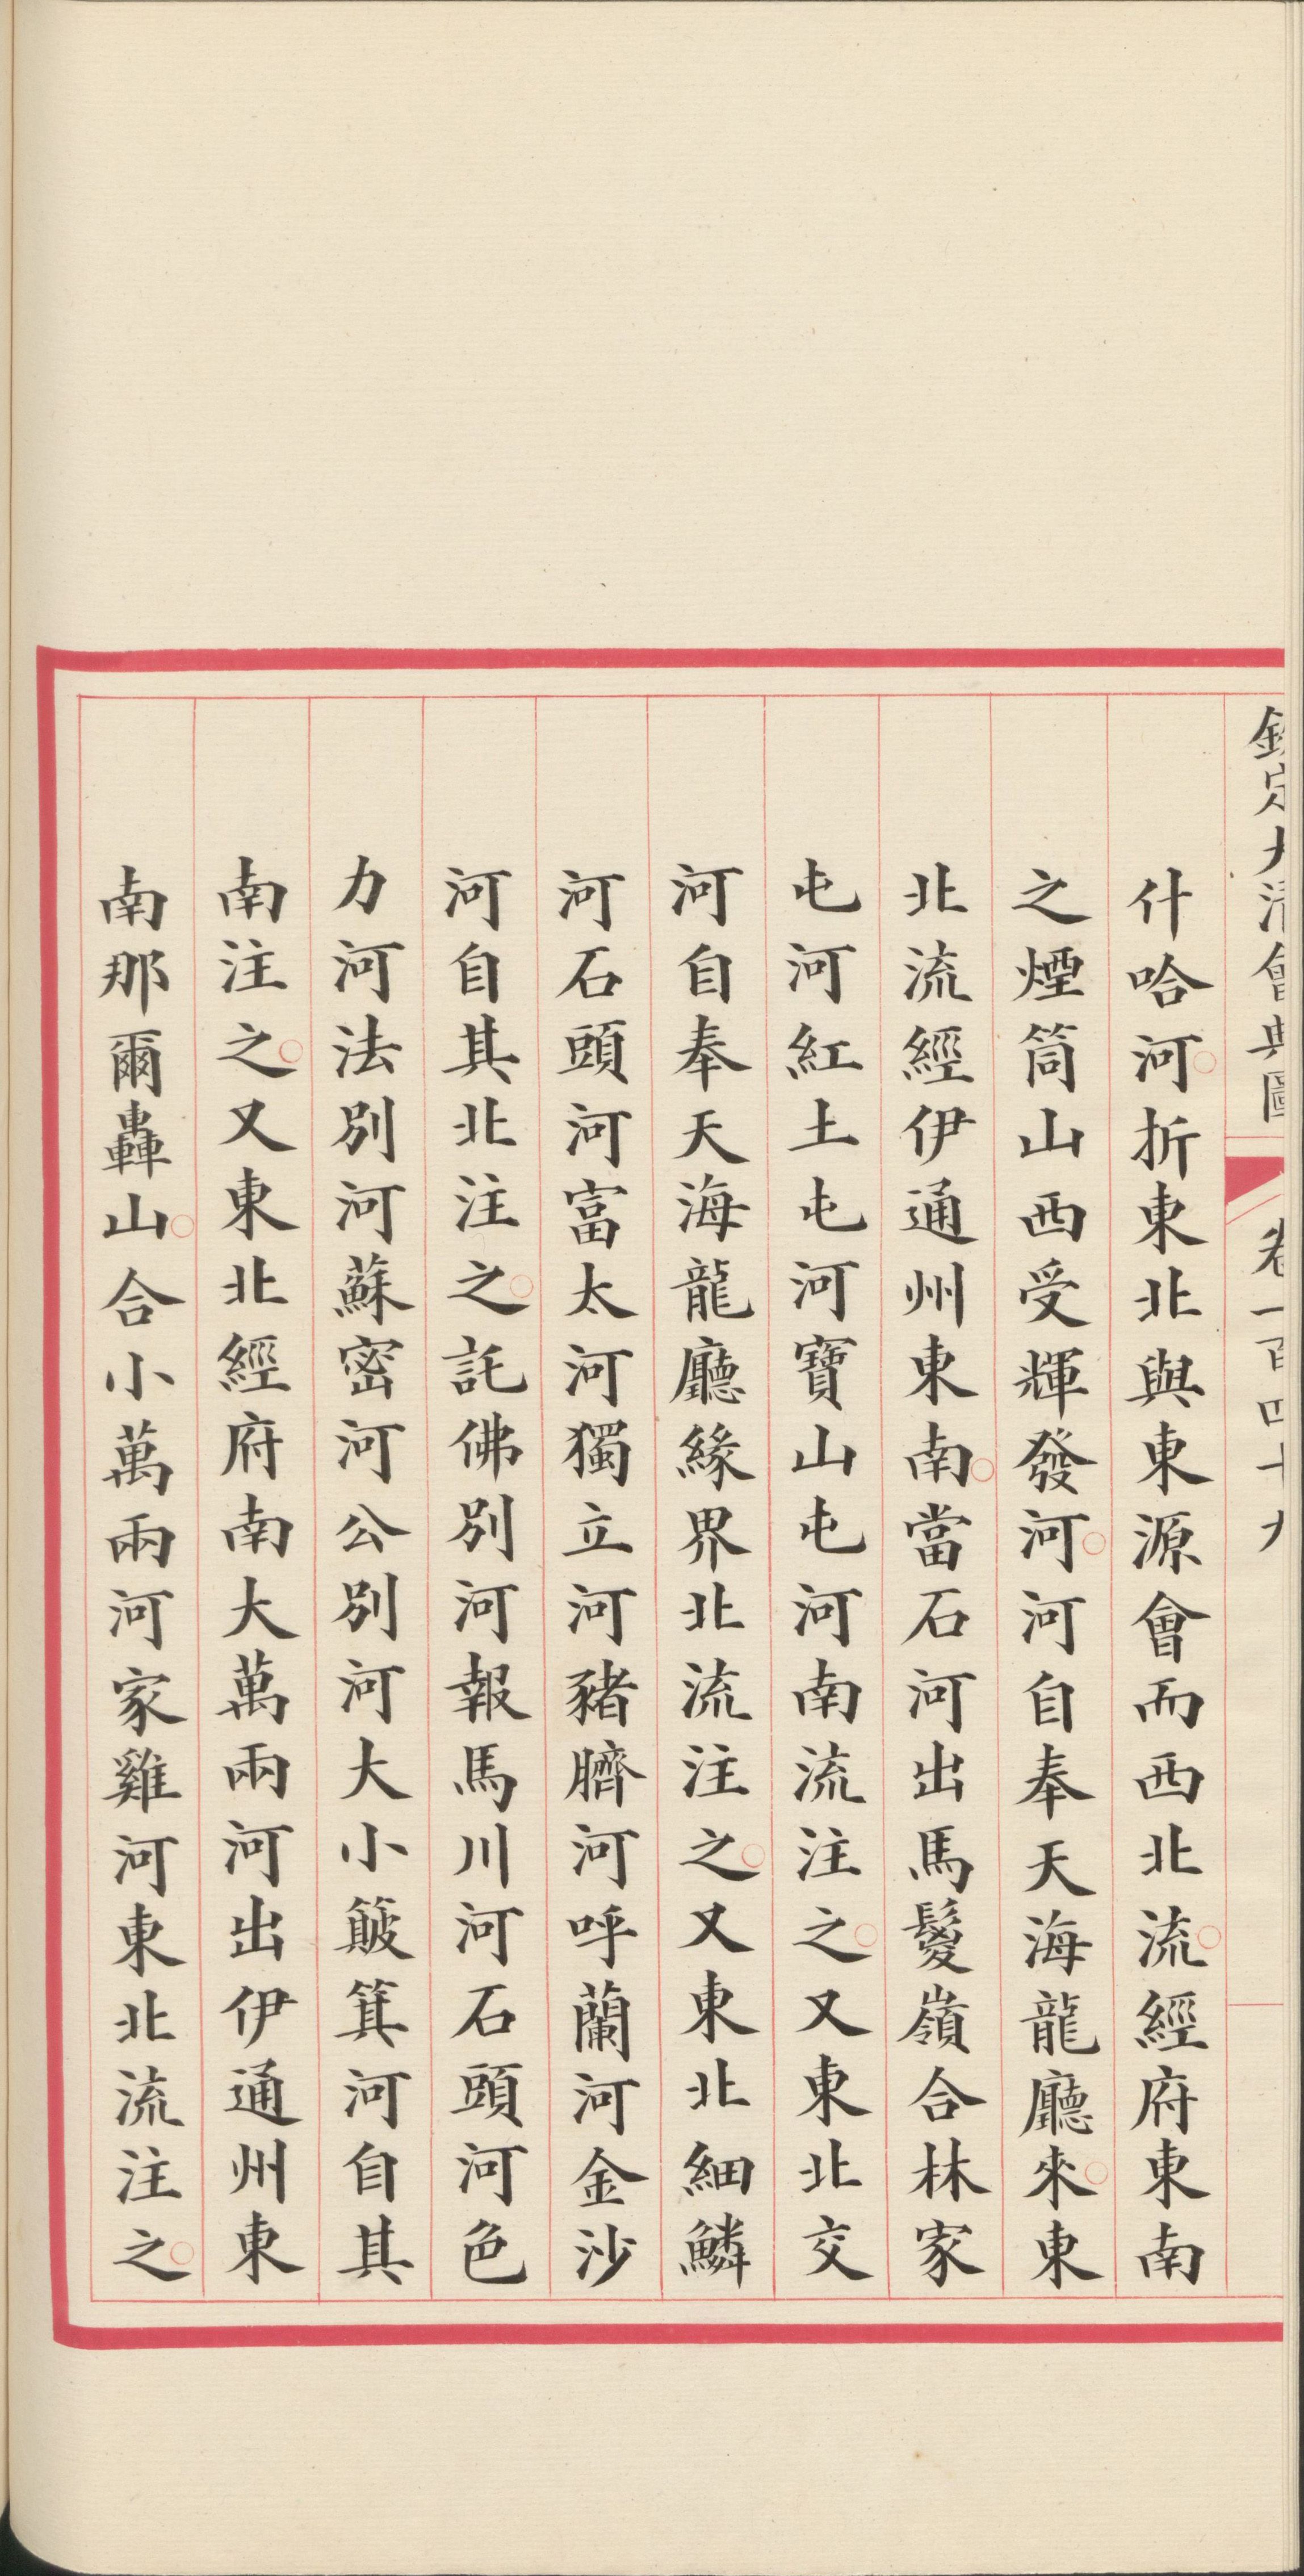 欽定大清會典圖 卷一百四十九
什哈河折東北與東源會而西北流經府東南
之煙筒山西受輝發河河自奉天海龍廳來東
北流經伊通州東南當石河出馬鬉嶺合林家
屯河紅土屯河寶山屯河南流注之又東北交
河自奉天海龍廳緣界北流注之又東北細鱗
河石頭河富太河獨立河豬臍河呼蘭河金沙
河自其北注之託佛別河報馬川河石頭河色
力河法別河蘇密河公別河大小簸箕河自其
南注之又東北經府南大萬兩河出伊通州東
南那爾轟山合小萬兩河家雞河東北流注之